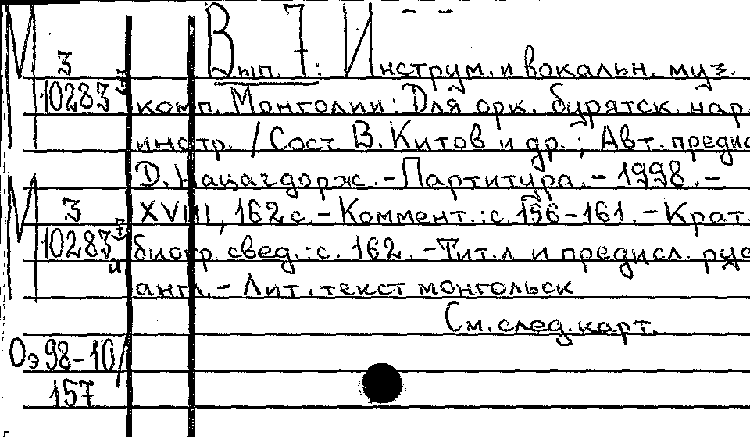 Вып. 7: Инструм. и вокальн. муз.
М 3
10283
комп. Монголии: Для орк. бурятск. нар.
инстр. / Сост. В. Китов и др.; Авт. предис
Д. Нацагдорж. - Партитура. - 1998. -
М 3
XVIII, 162 с. - Коммент.: с. 156-161. - Крат.
10283
биогр. свед.: с. 162. - Тит. л. и предисл. рус
англ. - Лит. текст монгольск
См. след. карт.
Оэ 98-10/
157